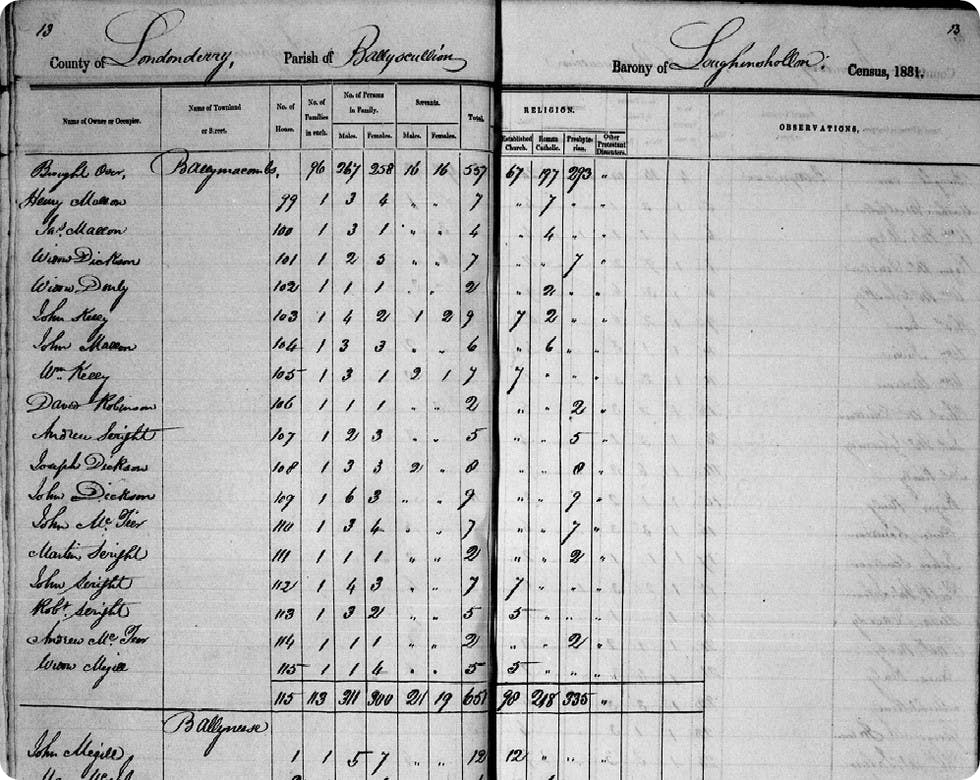 13 13
County of Londonderry, Parish of Ballyscullion Barony of Loughinshollin: Census, 1831.
Name of Owner or Occupier. Name of Townland or Street. No. of House. No. of Families in each. No. of Persons in Family. Males. Females. Servants. Males. Females. Total. RELIGION. Established Church. Roman Catholic. Presbyterian. Other Protestant Dissenters. OBSERVATIONS.
Brought Over, Ballymacombs, 96 267 258 16 16 557 67 197 293 "
Henry Mallon 99 1 3 4 " " 7 " 7 " "
Jas. Mallon 100 1 3 1 " " 4 " 4 " "
Widow Dickson 101 1 2 5 " " 7 " " 7 "
Widow Donly 102 1 1 1 " " 2 " 2 " "
John Kelly 103 1 4 2 1 2 9 7 2 " "
John Mallon 104 1 3 3 " " 6 " 6 " "
Wm. Kelly 105 1 3 1 2 1 7 7 " " "
David Robinson 106 1 1 1 " " 2 " " 2 "
Andrew Seright 107 1 2 3 " " 5 " " 5 "
Joseph Dickson 108 1 3 3 2 " 8 " " 8 "
John Dickson 109 1 6 3 " " 9 " " 9 "
John Mc. Teer 110 1 3 4 " " 7 " " 7 "
Martin Seright 111 1 1 1 " " 2 " " 2 "
John Seright 112 1 4 3 " " 7 7 " " "
Robt. Seright 113 1 3 2 " " 5 5 " " "
Andrew Mc. Teer 114 1 1 1 " " 2 " " 2 "
Widow Megill 115 1 1 4 " " 5 5 " " "
115 113 311 300 21 19 651 98 218 335 "
Ballyneese
John Megill 1 1 5 7 " " 12 12 " " "